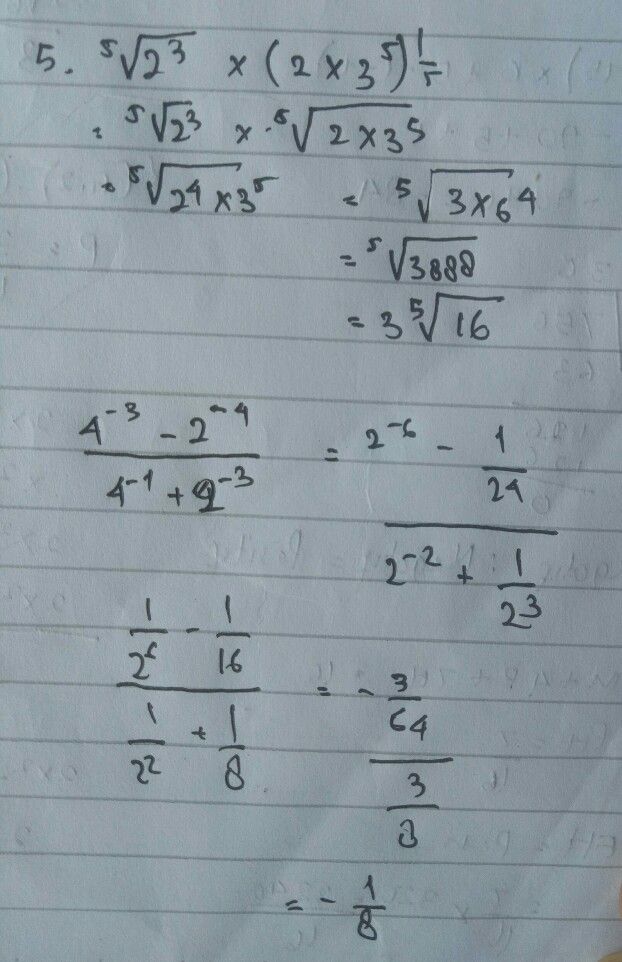 5. ⁵√2³ × (2 × 3⁵)^1/5
= ⁵√2³ × ⁵√2×3⁵
= ⁵√2⁴×3⁵ = ⁵√3×6⁴
= ⁵√3888
= 3 ⁵√16
(4⁻³ - 2⁻⁴)/(4⁻¹ + 2⁻³) = (2⁻⁶ - 1/2⁴)/(2⁻² + 1/2³)
(1/2⁶ - 1/16)/(1/2² + 1/8) = (-3/64)/(3/8)
= - 1/8